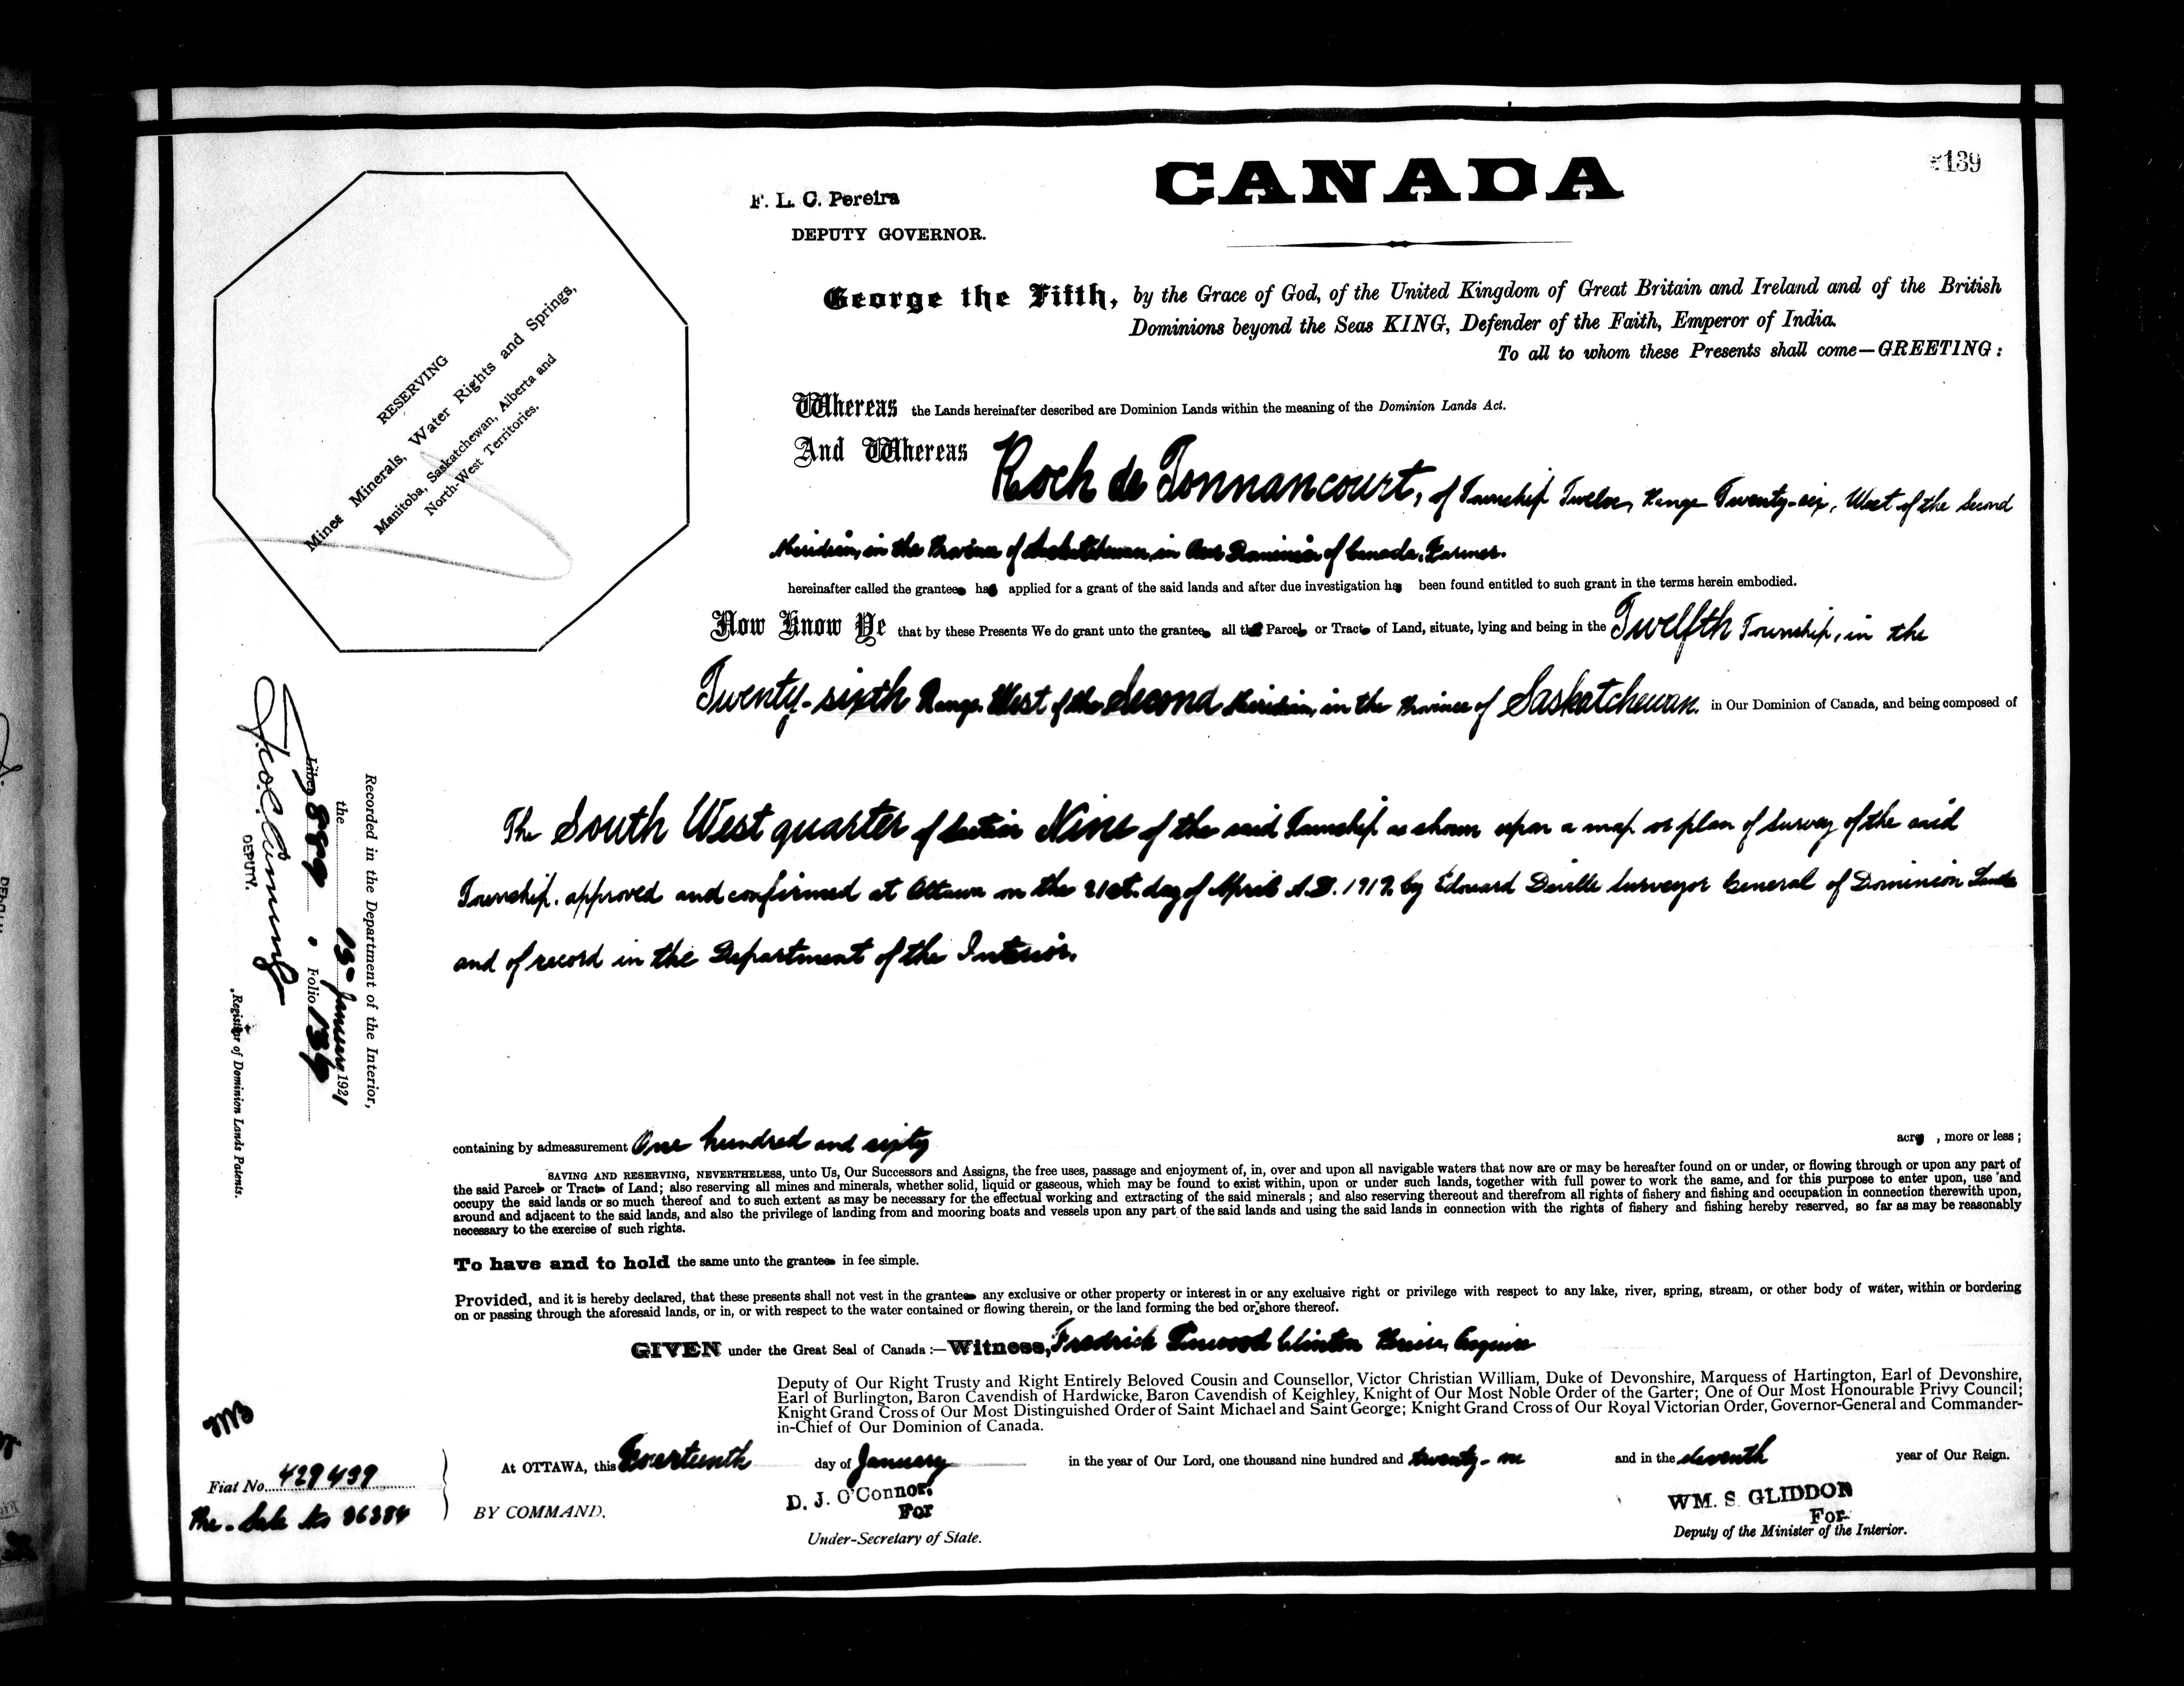 139
CANADA
F. L. C. Pereira
DEPUTY GOVERNOR.
George the Fifth, by the Grace of God, of the United Kingdom of Great Britain and Ireland and of the British
Dominions beyond the Seas KING, Defender of the Faith, Emperor of India.
To all to whom these Presents shall come—GREETING:
RESERVING
Mines Minerals, Water Rights and Springs,
Manitoba, Saskatchewan, Alberta and
North-West Territories.
Whereas the Lands hereinafter described are Dominion Lands within the meaning of the Dominion Lands Act.
And Whereas Roch de Tonnancourt, of Township Twelve, Range Twenty-six, West of the Second
Meridian, in the Province of Saskatchewan, in Our Dominion of Canada, Farmer.
hereinafter called the grantee has applied for a grant of the said lands and after due investigation has been found entitled to such grant in the terms herein embodied.
Now Know Ye that by these Presents We do grant unto the grantee all that Parcel or Tract of Land, situate, lying and being in the Twelfth Township, in the
Twenty-sixth Range West of the Second Meridian, in the Province of Saskatchewan. in Our Dominion of Canada, and being composed of
The South West quarter of Section Nine of the said Township as shown upon a map or plan of survey of the said
Township. approved and confirmed at Ottawa on the 21st. day of April A.D. 1919. by Edouard Deville Surveyor General of Dominion Lands
and of record in the Department of the Interior.
Recorded in the Department of the Interior,
the 18th January 1921
Liber 889 Folio 139
DEPUTY.
Register of Dominion Lands Patents.
containing by admeasurement One hundred and sixty acres, more or less;
SAVING AND RESERVING, NEVERTHELESS, unto Us, Our Successors and Assigns, the free uses, passage and enjoyment of, in, over and upon all navigable waters that now are or may be hereafter found on or under, or flowing through or upon any part of
the said Parcel or Tract of Land; also reserving all mines and minerals, whether solid, liquid or gaseous, which may be found to exist within, upon or under such lands, together with full power to work the same, and for this purpose to enter upon, use and
occupy the said lands or so much thereof and to such extent as may be necessary for the effectual working and extracting of the said minerals; and also reserving thereout and therefrom all rights of fishery and fishing and occupation in connection therewith upon,
around and adjacent to the said lands, and also the privilege of landing from and mooring boats and vessels upon any part of the said lands and using the said lands in connection with the rights of fishery and fishing hereby reserved, so far as may be reasonably
necessary to the exercise of such rights.
To have and to hold the same unto the grantee in fee simple.
Provided, and it is hereby declared, that these presents shall not vest in the grantee any exclusive or other property or interest in or any exclusive right or privilege with respect to any lake, river, spring, stream, or other body of water, within or bordering
on or passing through the aforesaid lands, or in, or with respect to the water contained or flowing therein, or the land forming the bed or shore thereof.
GIVEN under the Great Seal of Canada:—Witness, Fredrick Clinton Esquire
Deputy of Our Right Trusty and Right Entirely Beloved Cousin and Counsellor, Victor Christian William, Duke of Devonshire, Marquess of Hartington, Earl of Devonshire,
Earl of Burlington, Baron Cavendish of Hardwicke, Baron Cavendish of Keighley, Knight of Our Most Noble Order of the Garter; One of Our Most Honourable Privy Council;
Knight Grand Cross of Our Most Distinguished Order of Saint Michael and Saint George; Knight Grand Cross of Our Royal Victorian Order, Governor-General and Commander-
in-Chief of Our Dominion of Canada.
At OTTAWA, this Fourteenth day of January in the year of Our Lord, one thousand nine hundred and twenty-one and in the eleventh year of Our Reign.
Fiat No. 429439
Pre-Sale No 26384
BY COMMAND,
D. J. O'Connor,
For
Under-Secretary of State.
WM. S. GLIDDON
For
Deputy of the Minister of the Interior.